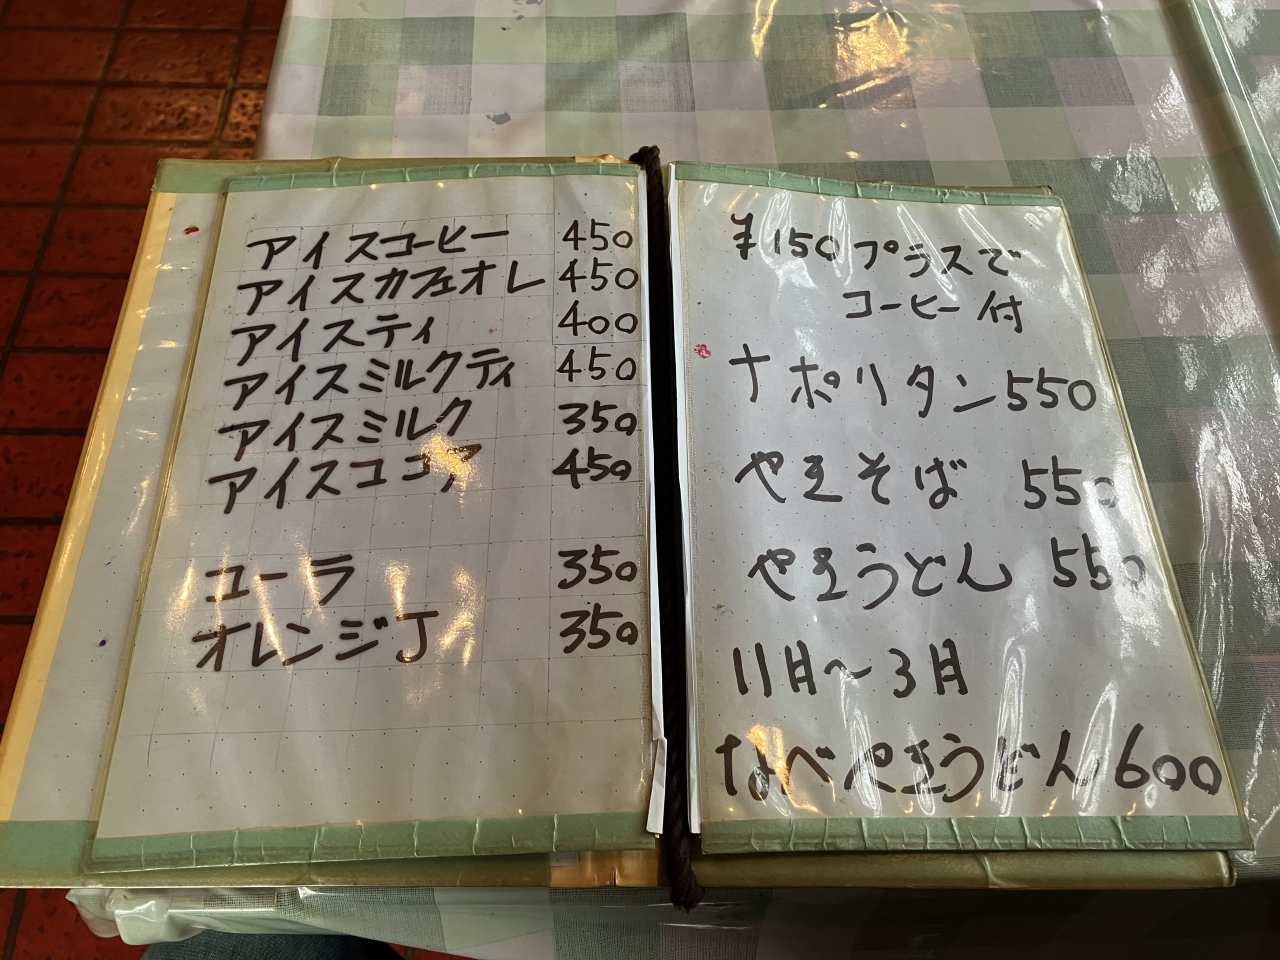 アイスコーヒー 450
アイスカフェオレ 450
アイスティ 400
アイスミルクティ 450
アイスミルク 350
アイスココア 450
コーラ 350
オレンジJ 350
¥150プラスで
コーヒー付
ナポリタン 550
やきそば 550
やきうどん 550
11月～3月
なべやきうどん 600